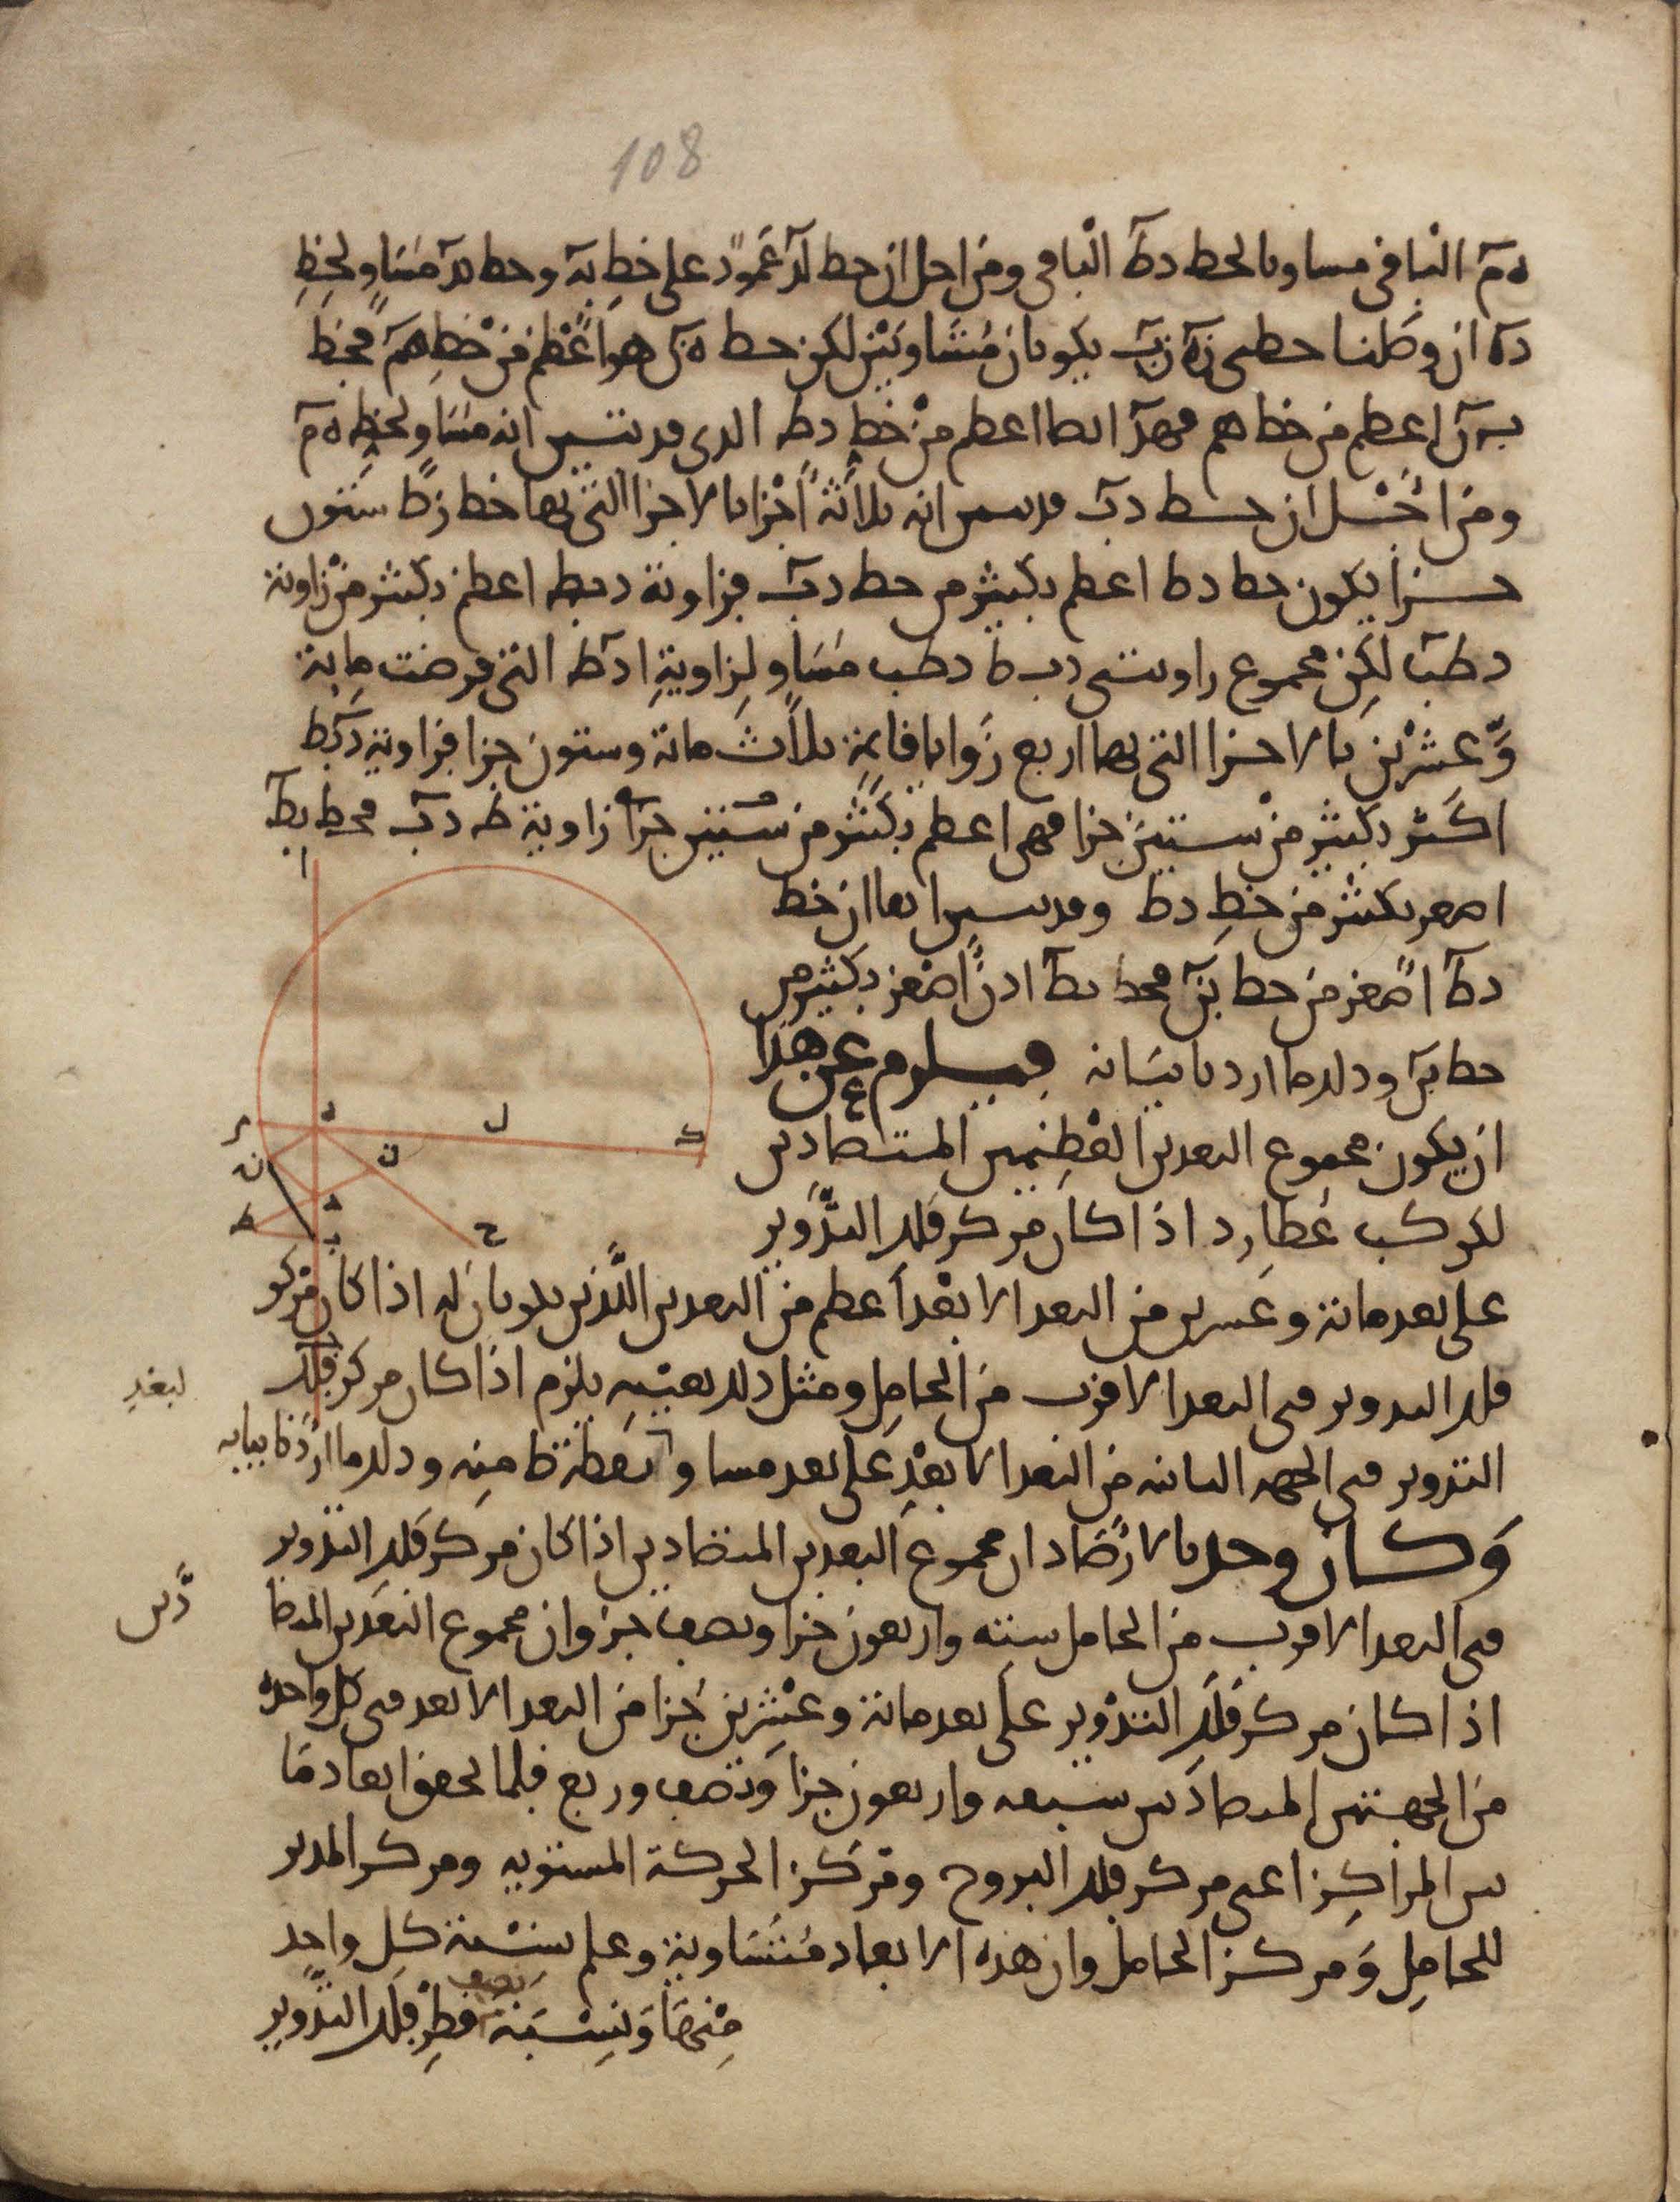 108
هم الباقي مساويا لخط دط الباقي ومن اجل ان خط لد عمود على خط به وخط بد مساو لخط
ده ان وصلنا خطي زه زب يكونان متساويين لكن خط هز هو اعظم من خط هم فخط
بز اعظم من خط هم فهو ايضا اعظم من خط دط الذي قد تبين انه مساو لخط هم
ومن اجل ان خط دب قد تبين انه ثلاثة اجزا بالاجزا التي بها خط زط ستون
جزا يكون خط دط اعظم بكثير من خط دب فزاوية دبط اعظم بكثير من زاوية
دطب لكن مجموع زاويتي دبط دطب مساو لزاوية ادط التي فرضت ماية
وعشرين بالاجزا التي بها اربع زوايا قايمة ثلاث ماية وستون جزا فزاوية دبط
اكثر بكثير من ستين جزا فهي اعظم بكثير من ستين جزا زاوية ط دب فخط بط
اصغر بكثير من خط دط وقد تبين ايضا ان خط
دط اصغر من خط بز فخط بط اذن اصغر بكثير من
خط بز وذلك ما اردنا بيانه فيلزم عن هذا
ان يكون مجموع البعدين العظيمين المتضادين
لكوكب عطارد اذا كان مركز فلك التدوير
على بعد ماية وعشرين من البعد الابعد اعظم من البعدين اللذين يكونان له اذا كان مركز
فلك التدوير في البعد الاقرب من الحامل ومثل ذلك بعينه يلزم اذا كان مركز فلك
التدوير في الجهة الثانية من البعد الابعد على بعد مساو لبعد نقطة ط منه وذلك ما اردنا بيانه
وكان وجد بالارصاد ان مجموع البعدين المتضادين اذا كان مركز فلك التدوير
في البعد الاقرب من الحامل ستة واربعون جزا ونصف جز وان مجموع البعدين المتضا
دين
اذا كان مركز فلك التدوير على بعد ماية وعشرين جزا من البعد الابعد في كل واحدة
من الجهتين المتضادتين سبعة واربعون جزا ونصف وربع فلما تحقق ابعاد ما
بين المراكز اعني مركز فلك البروج ومركز الحركة المستوية ومركز المدير
للحامل ومركز الحامل وان هذه الابعاد متساوية وعلم نسبة كل واحد
منها ونسبة نصف قطر فلك التدوير